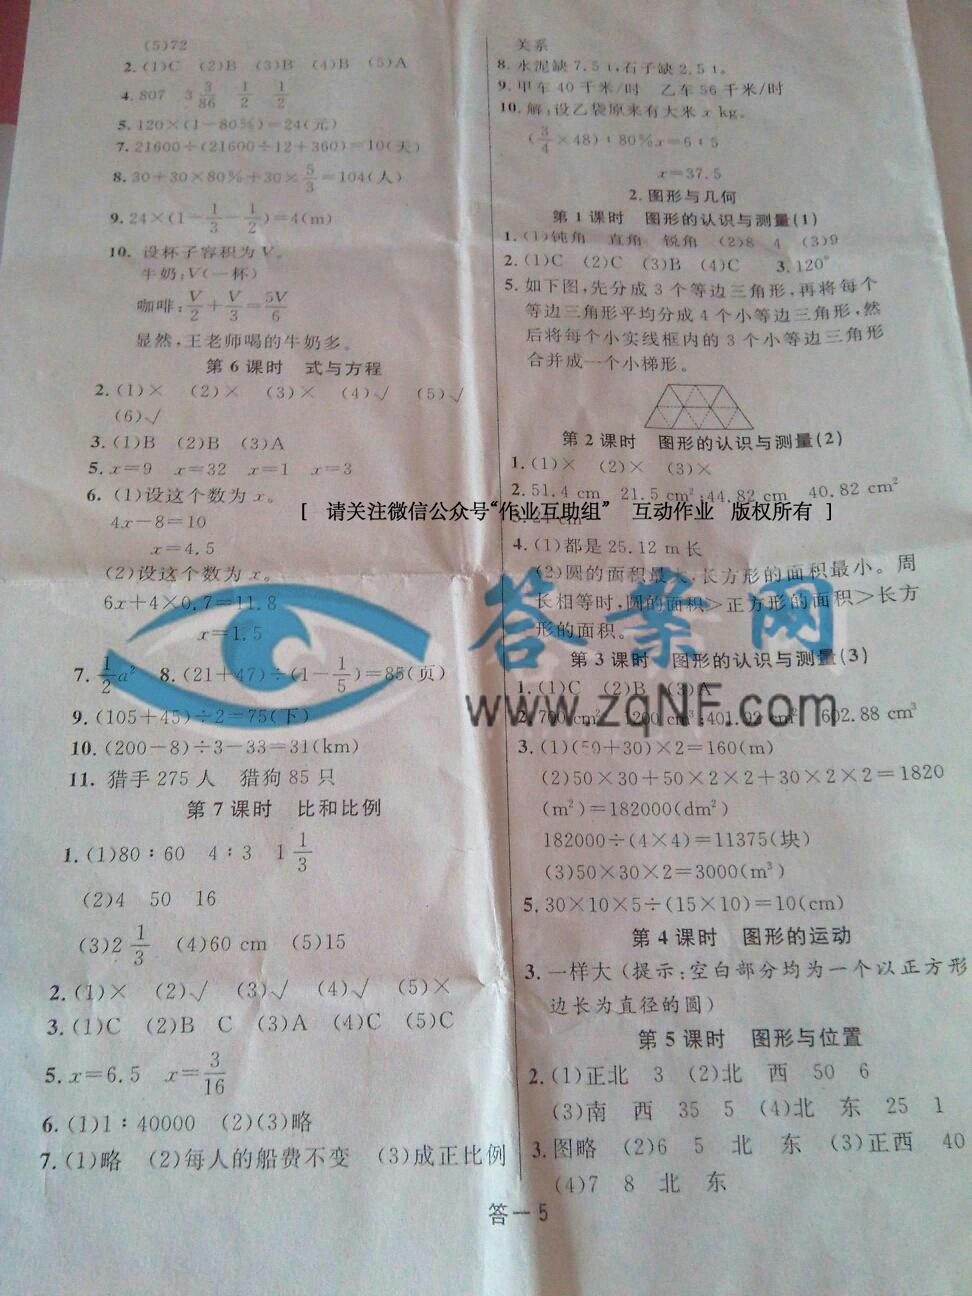 (5)72
2.(1)C (2)B (3)B (4)B (5)A
4.807 3 3/86 1/2 1/2
5.120×(1-80%)=24(元)
7.21600÷(21600÷12+360)=10(天)
8.30+30×80%+30×5/3=104(人)
9.24×(1-1/3-1/2)=4(m)
10.设杯子容积为V。
牛奶:V(一杯)
咖啡:V/2+V/3=5V/6
显然,王老师喝的牛奶多。
第6课时 式与方程
2.(1)× (2)× (3)× (4)√ (5)√
(6)√
3.(1)B (2)B (3)A
5.x=9 x=32 x=1 x=3
6.(1)设这个数为x。
4x-8=10
x=4.5
(2)设这个数为x。
6x+4×0.7=11.8
x=1.5
7.1/2a² 8.(21+47)÷(1-1/5)=85(页)
9.(105+45)÷2=75(下)
10.(200-8)÷3-33=31(km)
11.猎手275人 猎狗85只
第7课时 比和比例
1.(1)80:60 4:3 1 1/3
(2)4 50 16
(3)2 1/3 (4)60 cm (5)15
2.(1)× (2)√ (3)√ (4)√ (5)×
3.(1)C (2)B C (3)A (4)C (5)C
5.x=6.5 x=3/16
6.(1)1:40000 (2)(3)略
7.(1)略 (2)每人的船费不变 (3)成正比例
关系
8.水泥缺7.5 t,石子缺2.5 t。
9.甲车40千米/时 乙车56千米/时
10.解:设乙袋原来有大米x kg。
(3/4×48):80%x=6:5
x=37.5
2.图形与几何
第1课时 图形的认识与测量(1)
1.(1)钝角 直角 锐角 (2)8 4 (3)9
2.(1)C (2)C (3)B (4)C 3.120°
5.如下图,先分成3个等边三角形,再将每个
等边三角形平均分成4个小等边三角形,然
后将每个小实线框内的3个小等边三角形
合并成一个小梯形。
第2课时 图形的认识与测量(2)
1.(1)× (2)× (3)×
2.51.4 cm 21.5 cm²;44.82 cm 40.82 cm²
[ 请关注微信公众号“作业互助组” 互动作业 版权所有 ]
4.(1)都是25.12 m长
(2)圆的面积最大,长方形的面积最小。周
长相等时,圆的面积>正方形的面积>长方
形的面积。
答案网
第3课时 图形的认识与测量(3)
1.(1)C (2)B (3)A
www.zqNF.com
2.700 cm² 1200 cm³;401.92 cm² 602.88 cm³
3.(1)(50+30)×2=160(m)
(2)50×30+50×2×2+30×2×2=1820
(m²)=182000(dm²)
182000÷(4×4)=11375(块)
(3)50×30×2=3000(m³)
5.30×10×5÷(15×10)=10(cm)
第4课时 图形的运动
3.一样大(提示:空白部分均为一个以正方形
边长为直径的圆)
第5课时 图形与位置
2.(1)正北 3 (2)北 西 50 6
(3)南 西 35 5 (4)北 东 25 1
3.图略 (2)6 5 北 东 (3)正西 40
(4)7 8 北 东
答—5